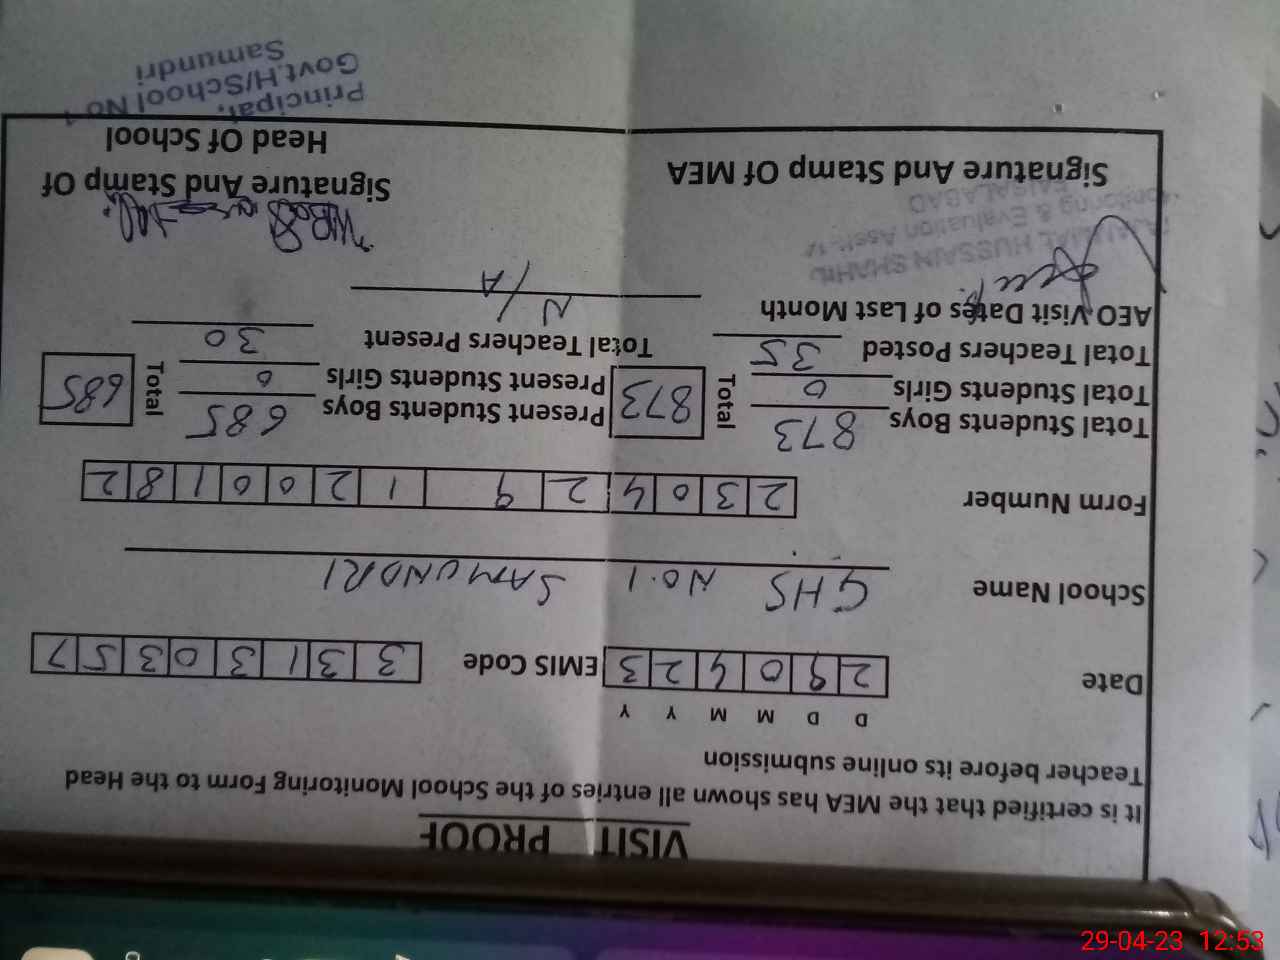 VISIT PROOF
It is certified that the MEA has shown all entries of the School Monitoring Form to the Head
Teacher before its online submission
D D M M Y Y
Date 2 9 0 4 2 3 EMIS Code 3 3 1 3 0 3 5 7
School Name GHS NO.1 SAMUNDRI
Form Number 2 3 0 4 2 9 1 2 0 0 1 8 2
Total Students Boys 873 Total 873 Present Students Boys 685 Total 685
Total Students Girls 0 Present Students Girls 0
Total Teachers Posted 35 Total Teachers Present 30
AEO Visit Dates of Last Month N/A
HUSSAIN SHAHID
Monitoring & Evaluation Asstt
FAISALABAD
Signature And Stamp Of MEA
Signature And Stamp Of
Head Of School
Principal,
Govt.H/School No 1
Samundri
29-04-23 12:53